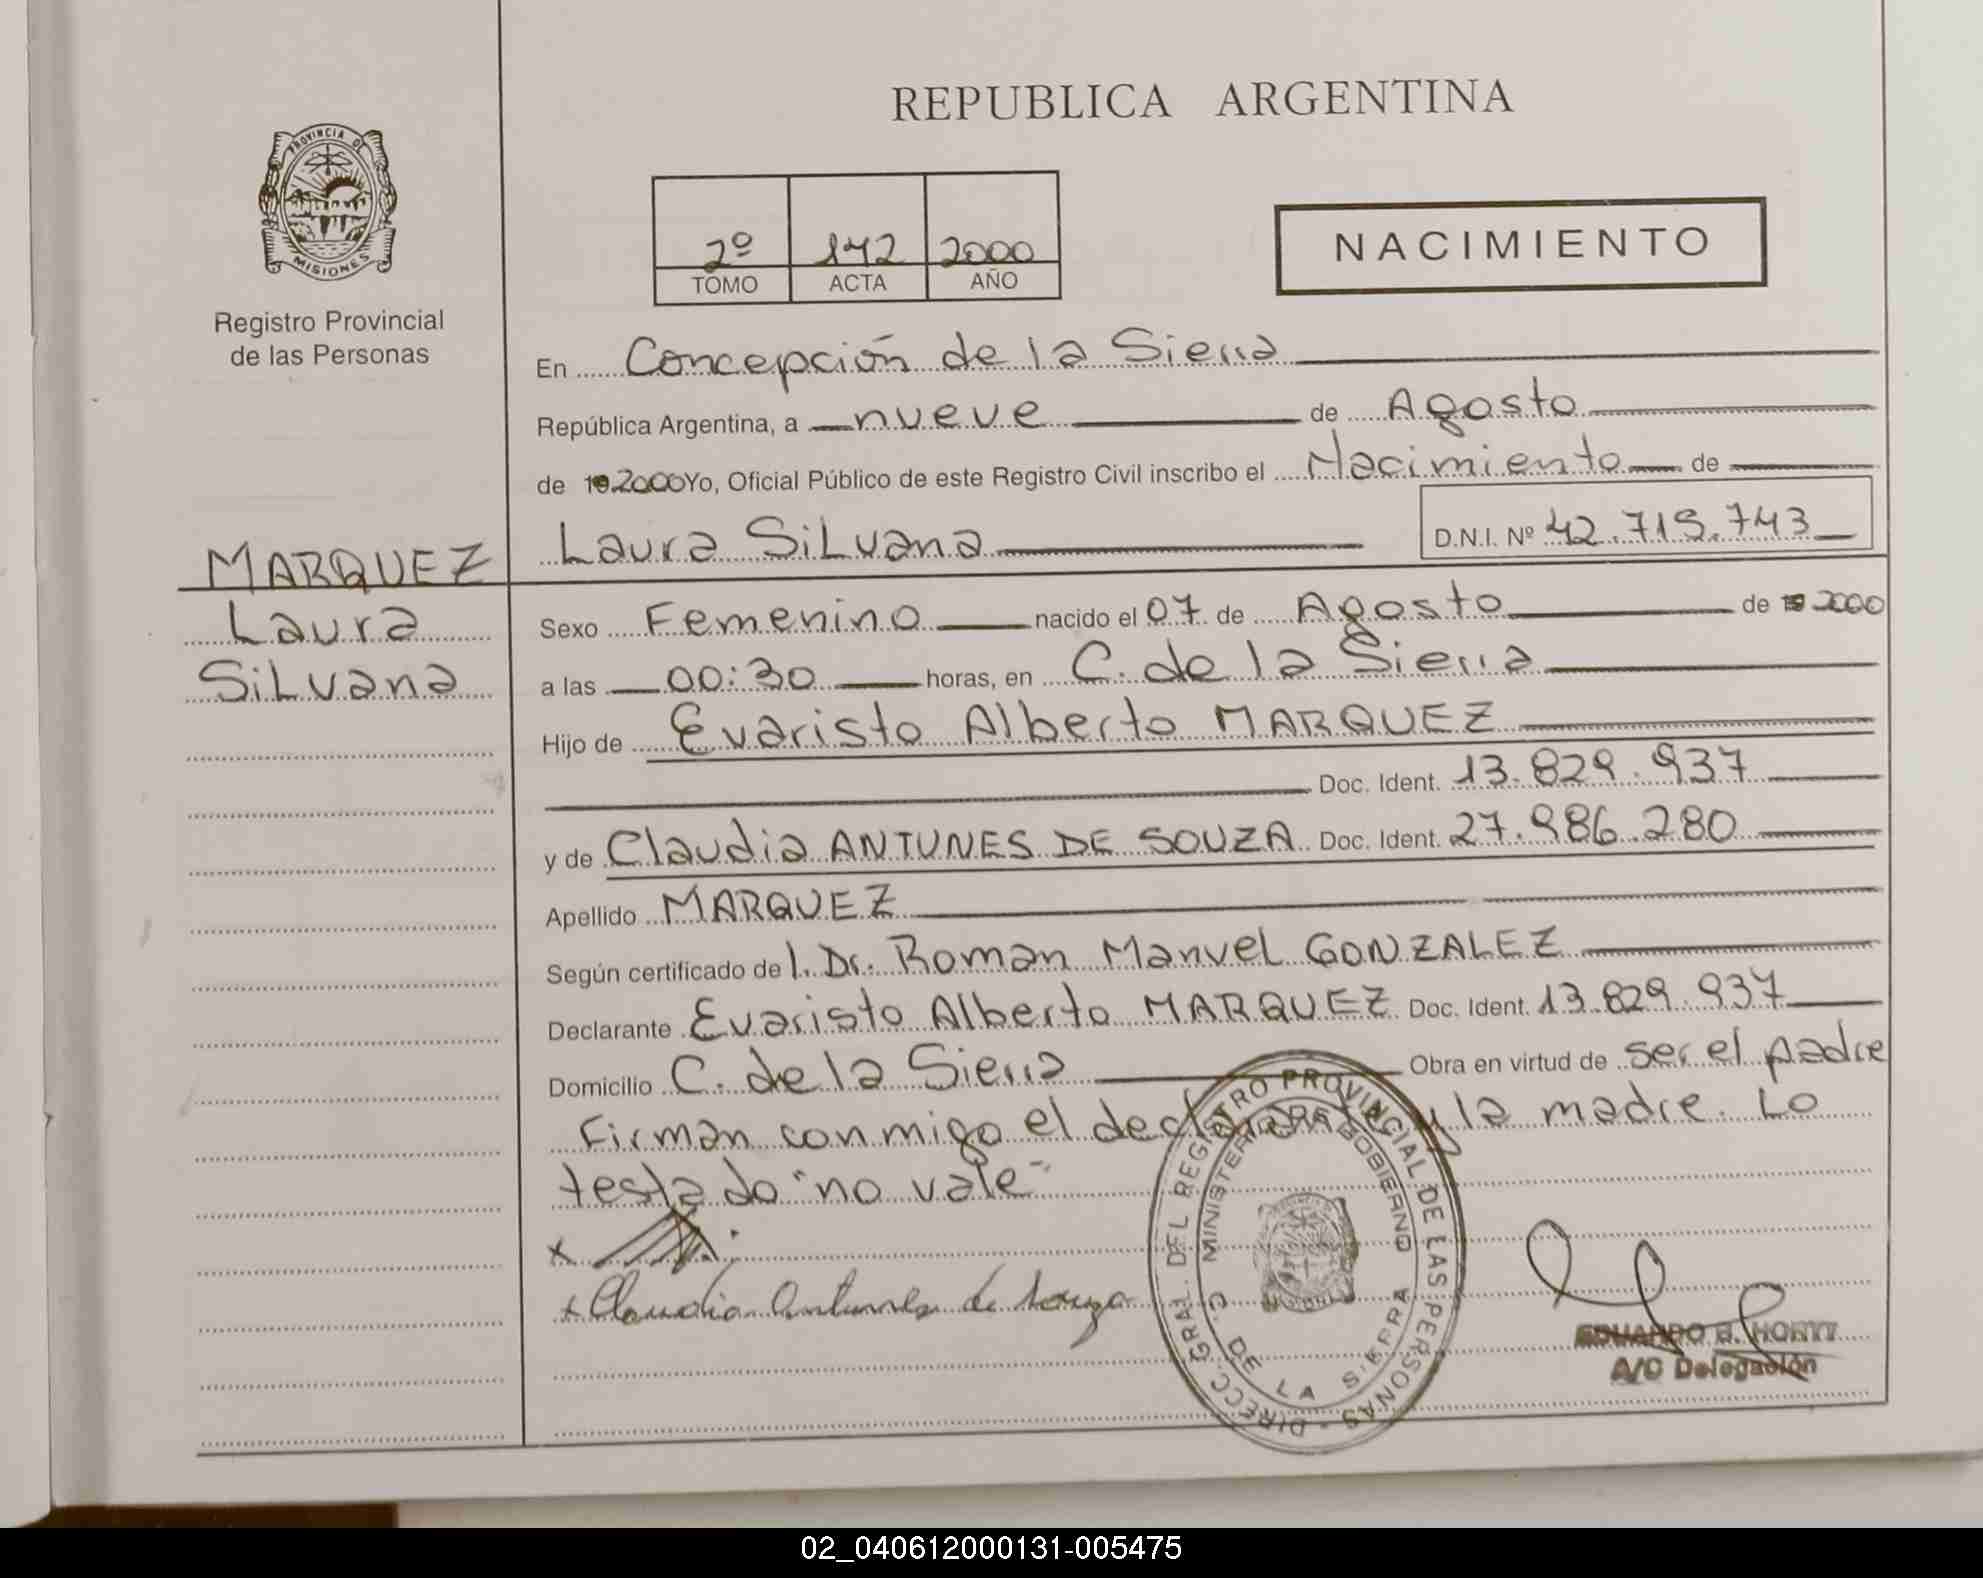 REPUBLICA ARGENTINA
PROVINCIA DE
MISIONES
Registro Provincial
de las Personas
2º 142 2000
TOMO ACTA AÑO
NACIMIENTO
En Concepción de la Sierra
República Argentina, a nueve de Agosto
de 19 2000 Yo, Oficial Público de este Registro Civil inscribo el Nacimiento de
Laura Silvana D.N.I. Nº 42.719.743
MARQUEZ
Laura
Silvana
Sexo Femenino nacido el 07 de Agosto de 19 2000
a las 00:30 horas, en C. de la Sierra
Hijo de Evaristo Alberto MARQUEZ
Doc. Ident. 13.829.937
y de Claudia ANTUNES DE SOUZA Doc. Ident. 27.986.280
Apellido MARQUEZ
Según certificado de l. Dr. Roman Manuel GONZALEZ
Declarante Evaristo Alberto MARQUEZ Doc. Ident. 13.829.937
Domicilio C. de la Sierra Obra en virtud de ser el padre
Firman conmigo el declarante y la madre. Lo
testado "no vale"
x
x Claudia Antunes de Souza
DIRECC. GRAL. DEL REGISTRO PROVINCIAL DE LAS PERSONAS
MINISTERIO DE GOBIERNO
C. DE LA SIERRA
EDUARDO
A/C Delegación
02_040612000131-005475